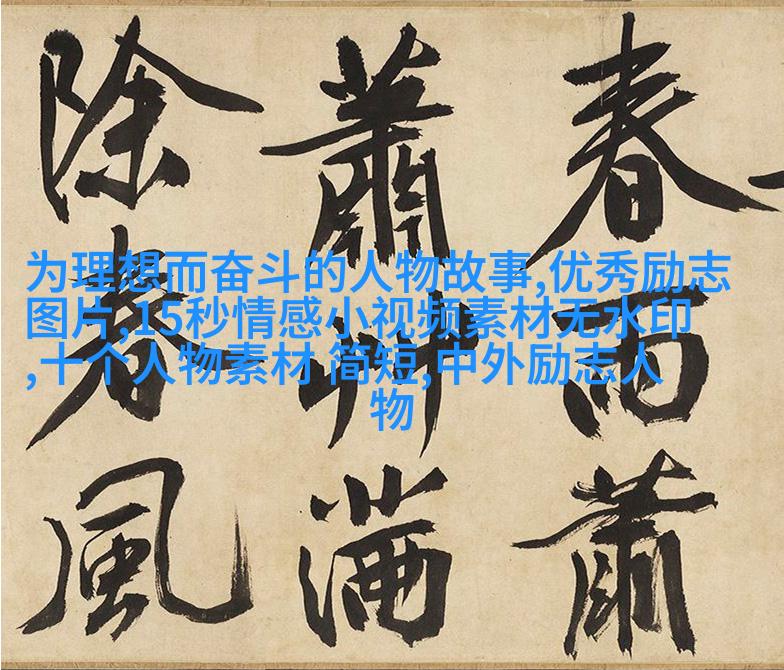 春雨蕭
蕭艸滿
除春風
为理想而奋斗的人物故事,优秀励志
图片,15秒情感小视频素材无水印
,十个人物素材 简短,中外励志人
物